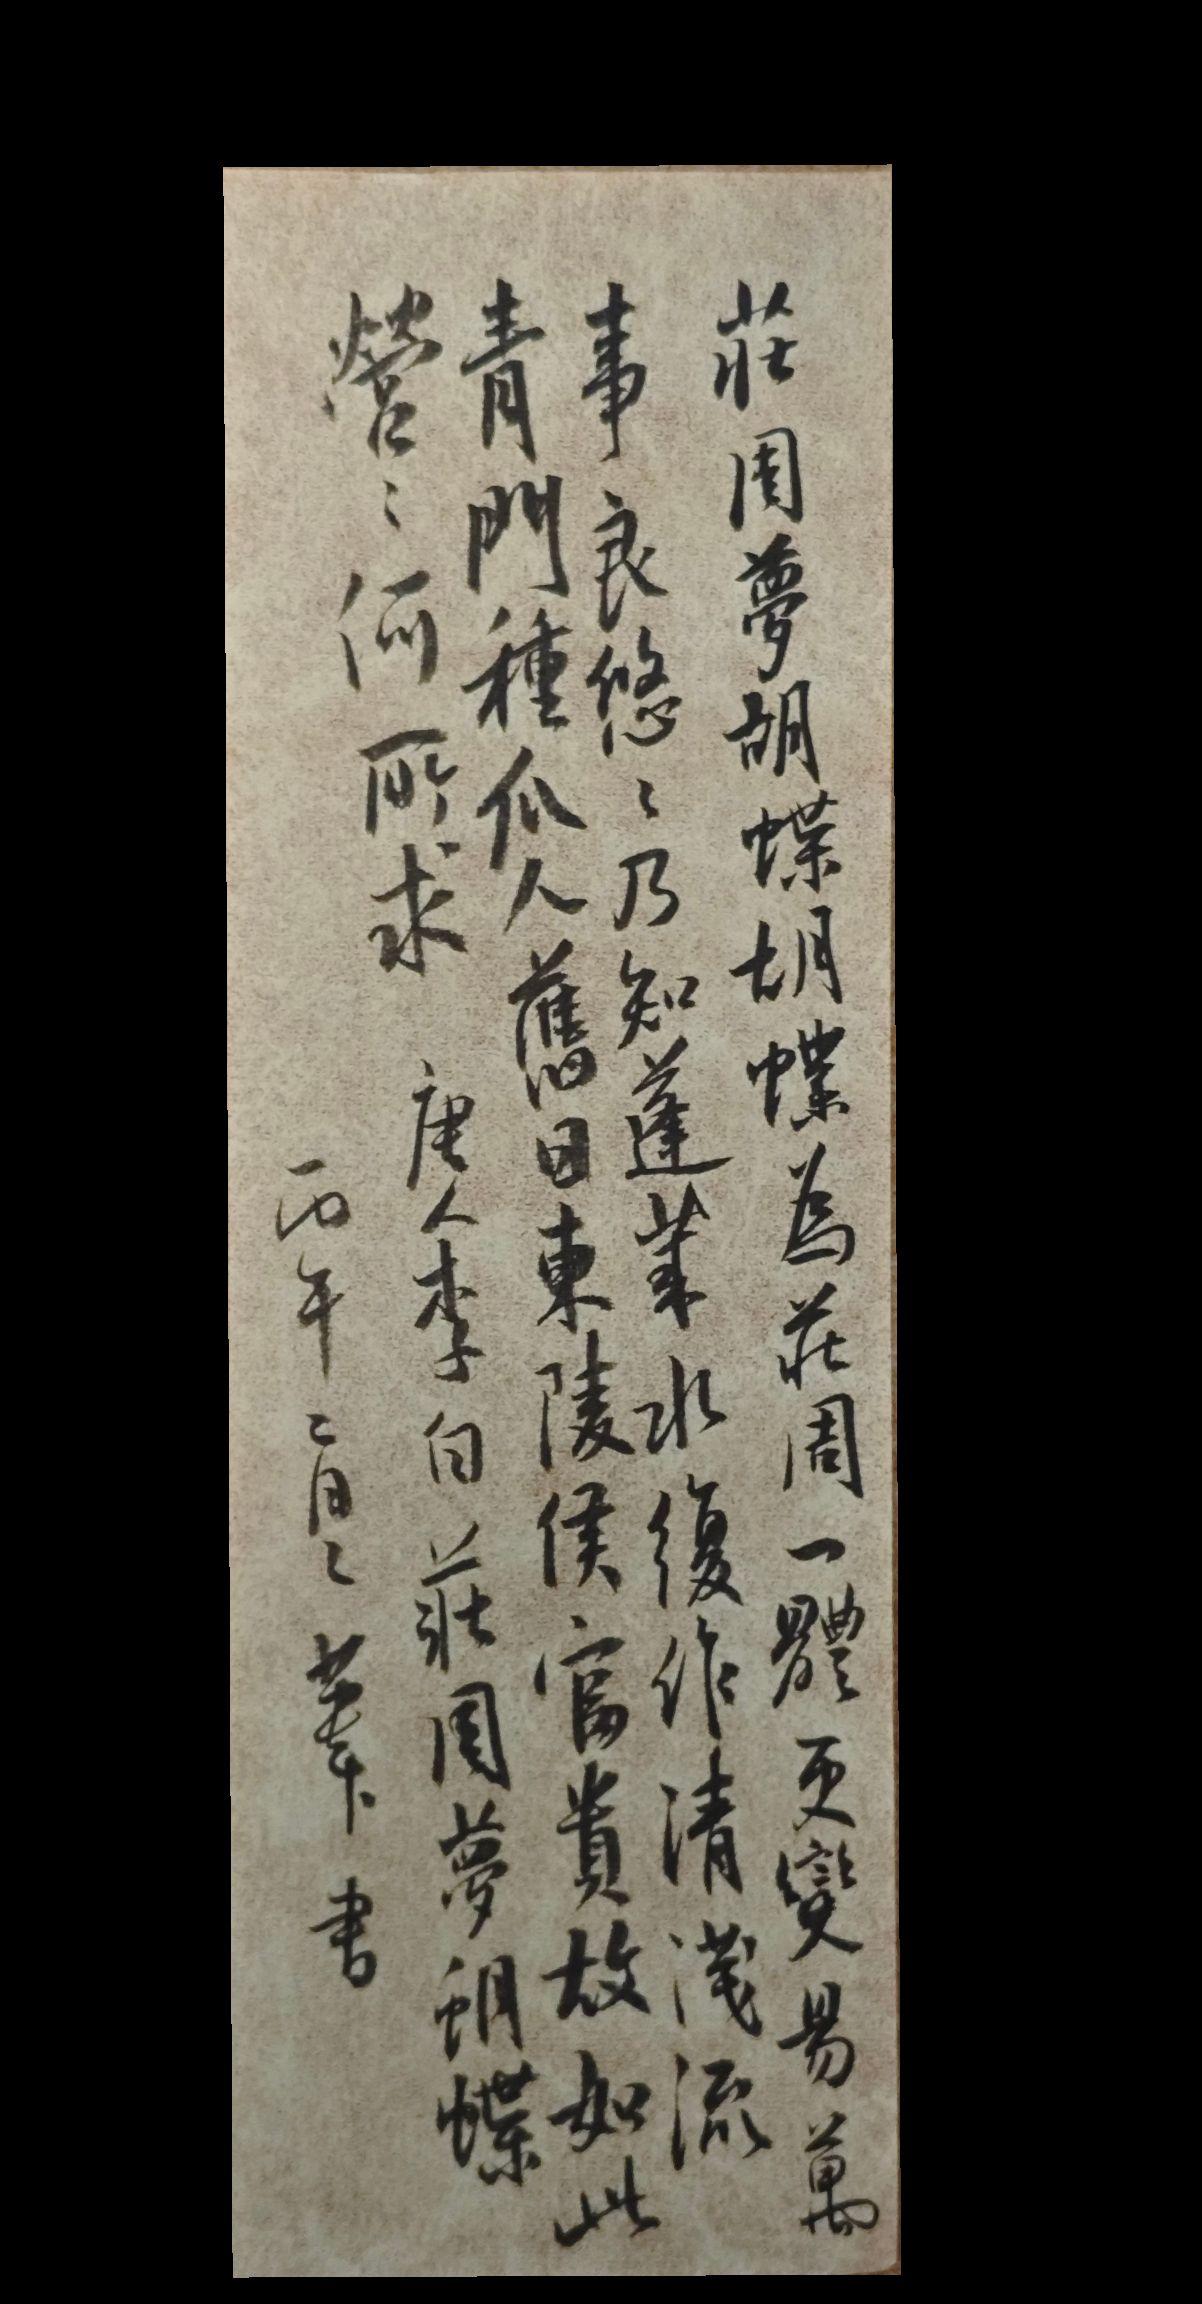 莊周夢胡蝶胡蝶為莊周一體更變易萬
事良悠〻乃知蓬萊水復作清淺流
青門種瓜人舊日東陵侯富貴故如此
營〻何所求 唐人李白莊周夢蝴蝶
丙午二月 書